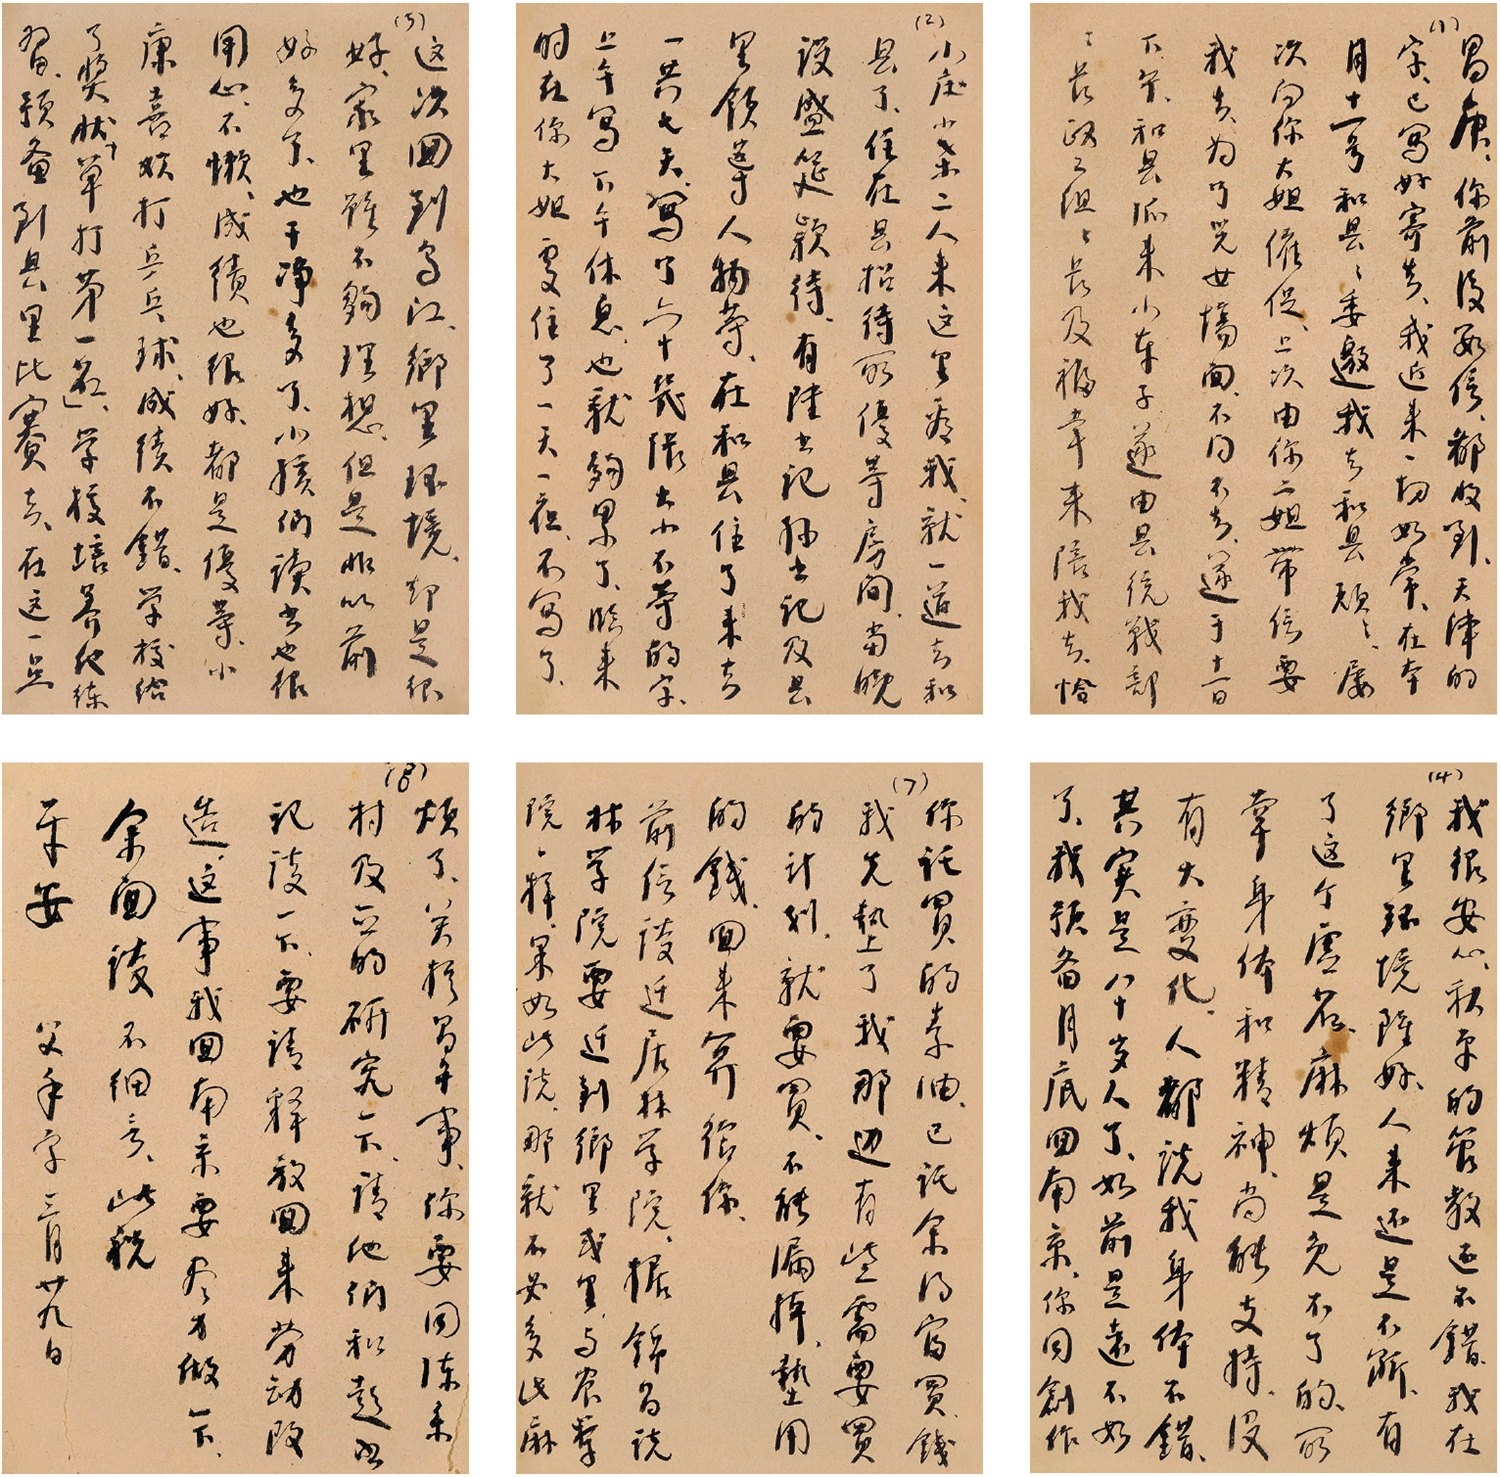 (1)
昌庚、你前后两信、都收到、天津的
字、已写好寄去、我近来一切如常、在本
月十一号和县县委邀我去和县玩玩、屡
次向你大姐催促、上次由你二姐带信要
我去、为了児女情面、不得不去、遂于十一日
下午、和县派来小车子、遂由县统战部
部长政工组组长及福幸来陪我去、恰
(2)
小庆小荣二人来这里看我、就一道去和
县了、住在县招待所优等房间、当晚
设盛筵款待、有陆书记孙书记及县
里领导人物等、在和县住了来去
一共七天、写了六十几张大小不等的字、
上午写下午休息、也就够累了、临来
时在你大姐处住了一天一夜、不写了、
(3)
这次回到乌江、乡里环境、却是很
好、家里虽不够理想、但是非以前
好多了、也干净多了、小孩们读书也很
用心、不懒、成绩也很好、都是优等、小
康喜欢打乒乓球、成绩不错、学校给
了奖状、单打第一名、学校培养他练
习、预备到县里比赛去、在这一点
(4)
我很安心、秋平的管教还不错、我在
乡里环境虽好、人来还是不断、有
了这个虚名、麻烦是免不了的、所
幸身体和精神、尚能支持、没
有大变化、人都说我身体不错、
其实是八十岁人了、如前是远不如
了、我预备月底回南京、你同创作
(7)
你託買的素油、已託余仍富買、錢
我先墊上了我那边有些需要買
的计划、就要買、不能漏掉、墊用
的錢、回来算给你、
前信谈迁居林学院、据錦昌说
林学院要迁到鄉里或里、与农学
院一样、果如此说、那就不必多此麻
(8)
烦了、关于昌午事、你要同陈东
村及正的研究一下、请他们和彭书
记谈一下、要请释放回来劳动改
造、这事我回南京要尽力做一下、
余面谈 不细言、此祝
平安
父手字 三月廿九日